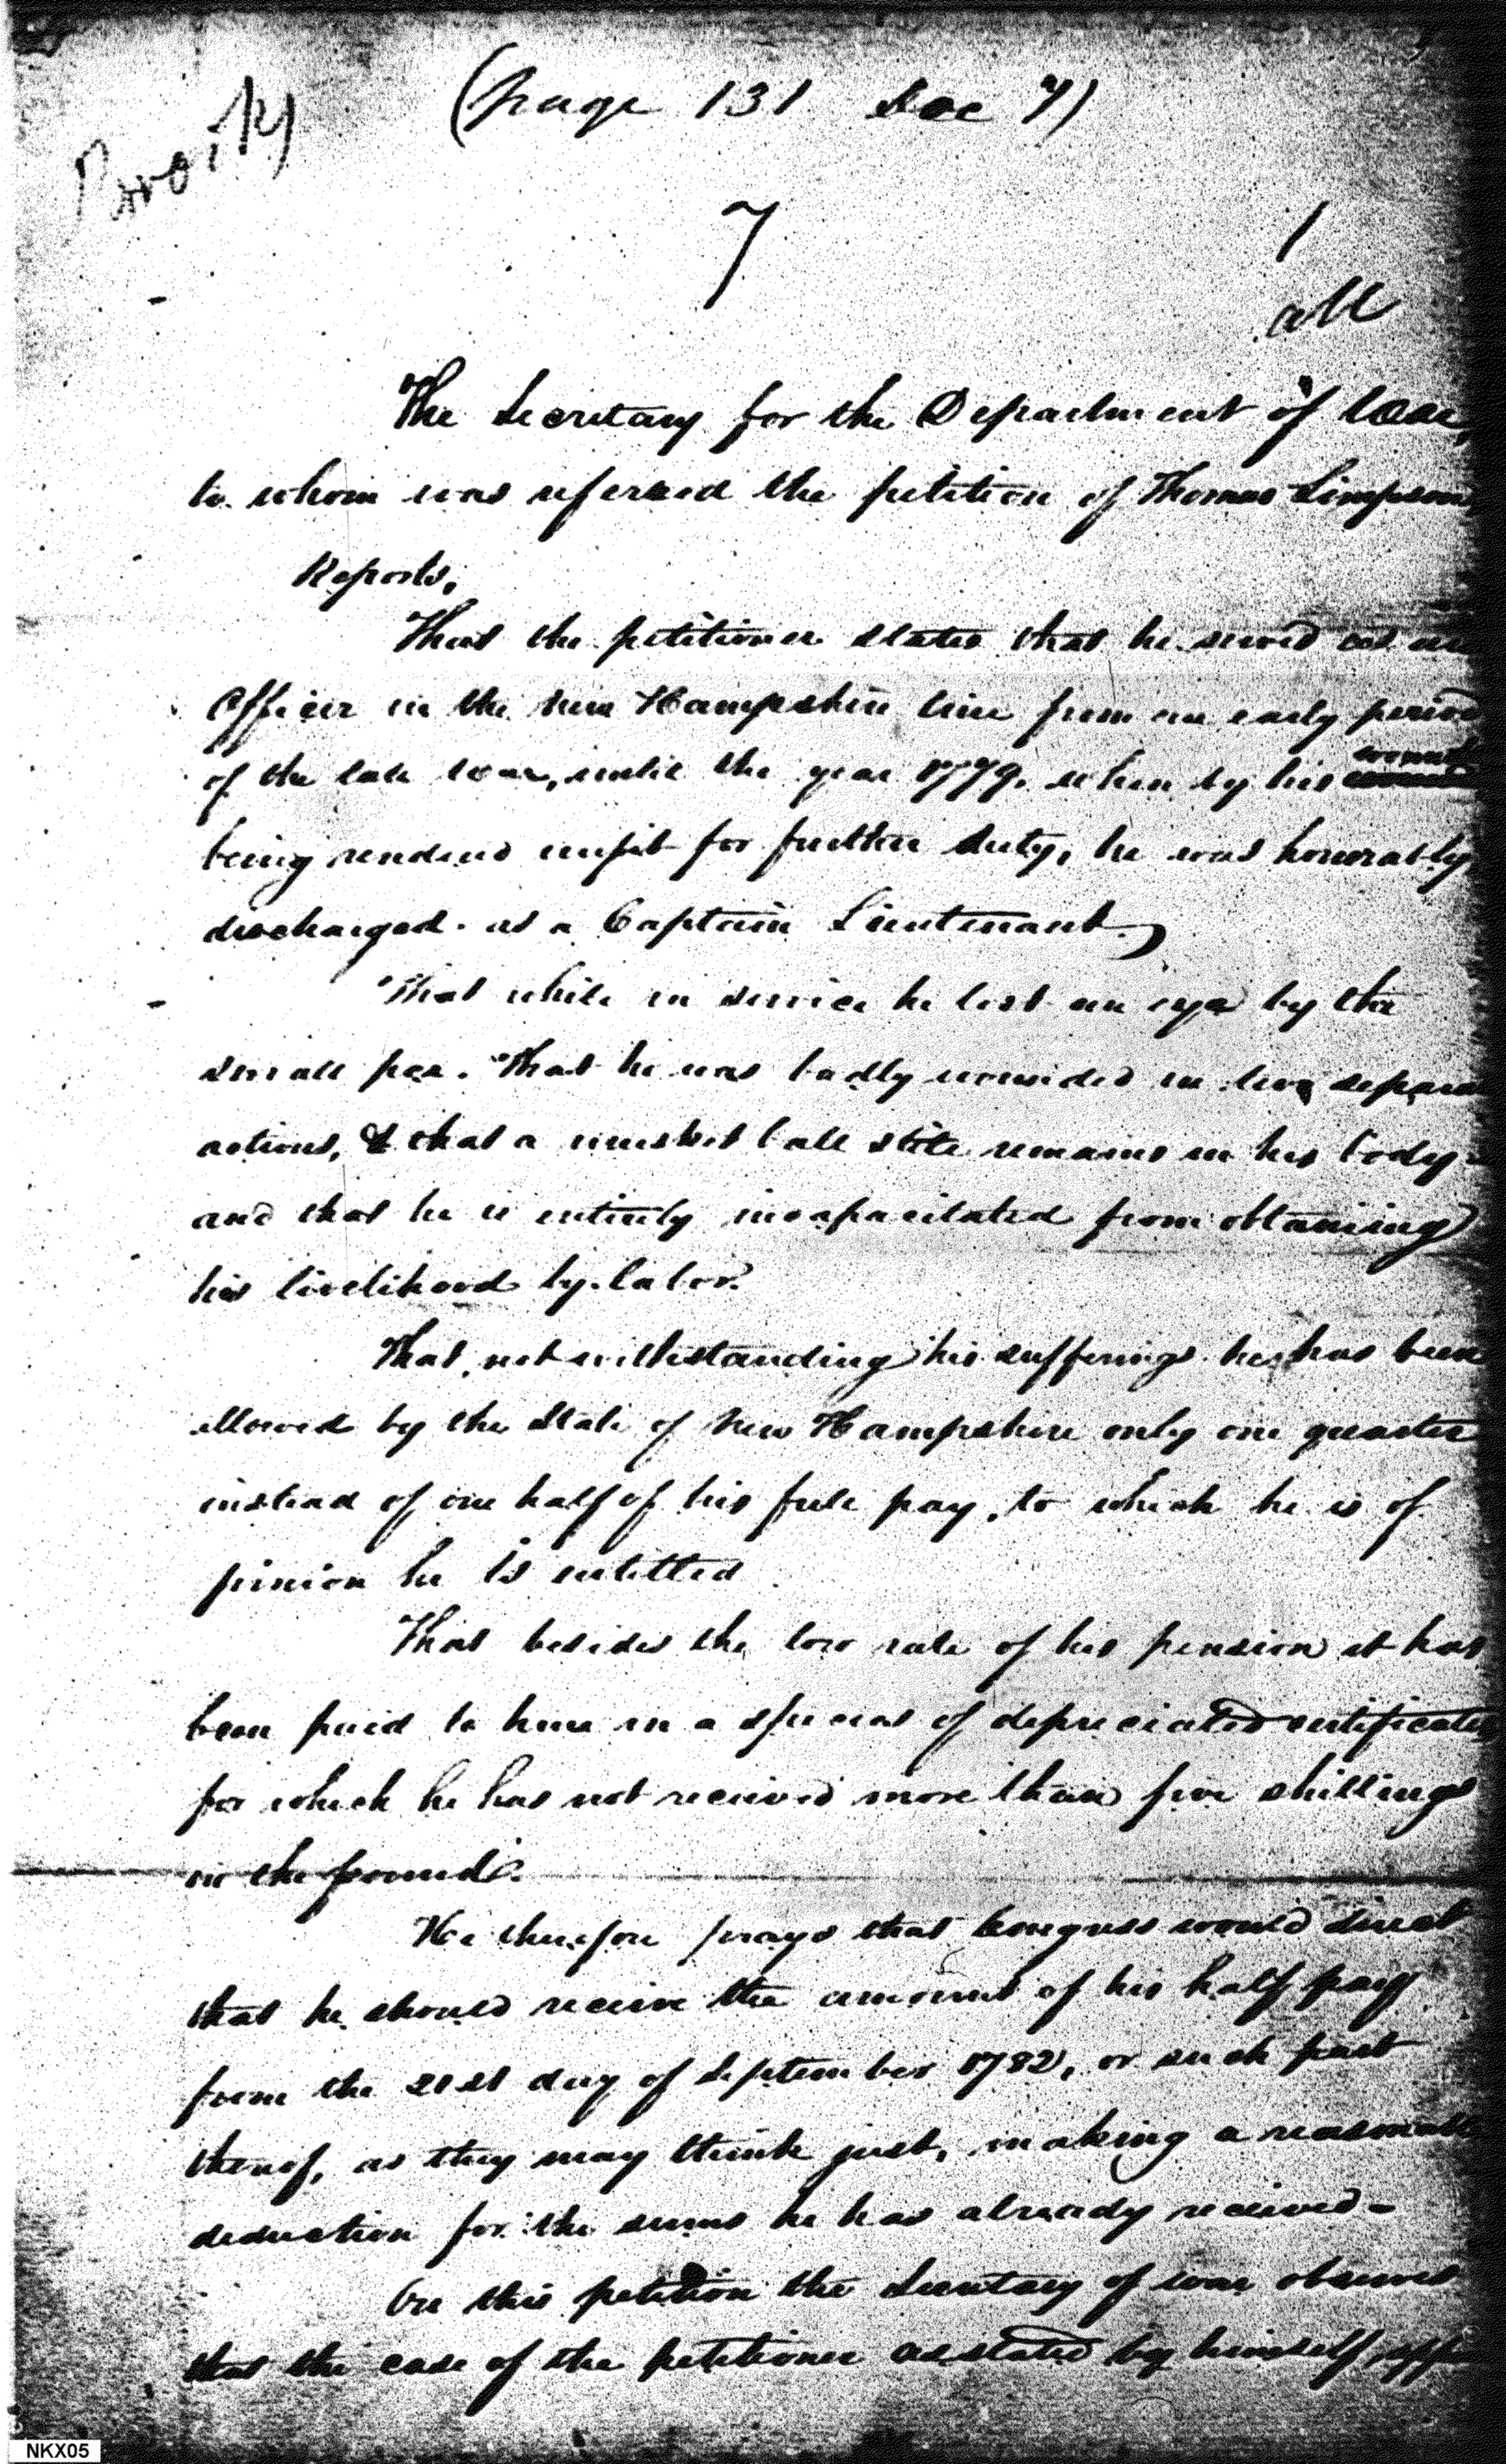 (page 131 Doc 7)
7
1
The Secretary for the Department of War,
to whom was referred the petition of Thomas Simpson
Reports,
That the petitioner states that he served as an
Officer in the New Hampshire line from an early period
of the late war, until the year 1779, when by his wounds
being rendered unfit for further duty, he was honorably
discharged as a Captain Lieutenant.
That while in service he lost an eye by the
small pox. That he was badly wounded in two separa
actions, & that a musket ball still remains in his body
and that he is entirely incapacitated from obtaining
his livelihood by labor.
That, notwithstanding his sufferings he has been
allowed by the State of New Hampshire only one quarter
instead of one half of his full pay, to which he is of
pinion he is entitled
That besides the low rate of his pension it has
been paid to him in a species of depreciated certificates
for which he has not received more than five shillings
in the pound.
He therefore prays that Congress would direct
that he should receive the amount of his half pay
from the 21st day of September 1782, or such part
thereof, as they may think just, making a reasonable
deduction for the sums he has already received-
On this petition the Secretary of war observes
that the case of the petitioner as stated by himself,
NKX05